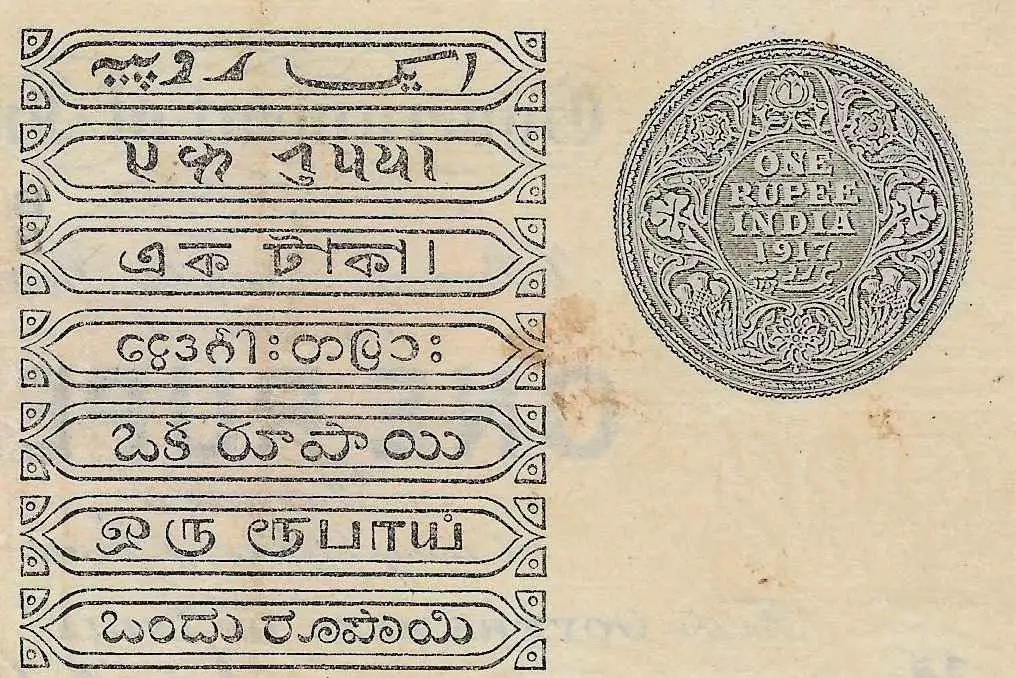 ایک روپیہ
𑂉𑂍 𑂩𑂳𑂣𑂨𑂰
এক টাকা।
ငွေဒင်္ဂါးတပြား
ఒక రూపాయి
ஒரு ரூபாய்
ಒಂದು ರೂಪಾಯಿ
ONE
RUPEE
INDIA
1917